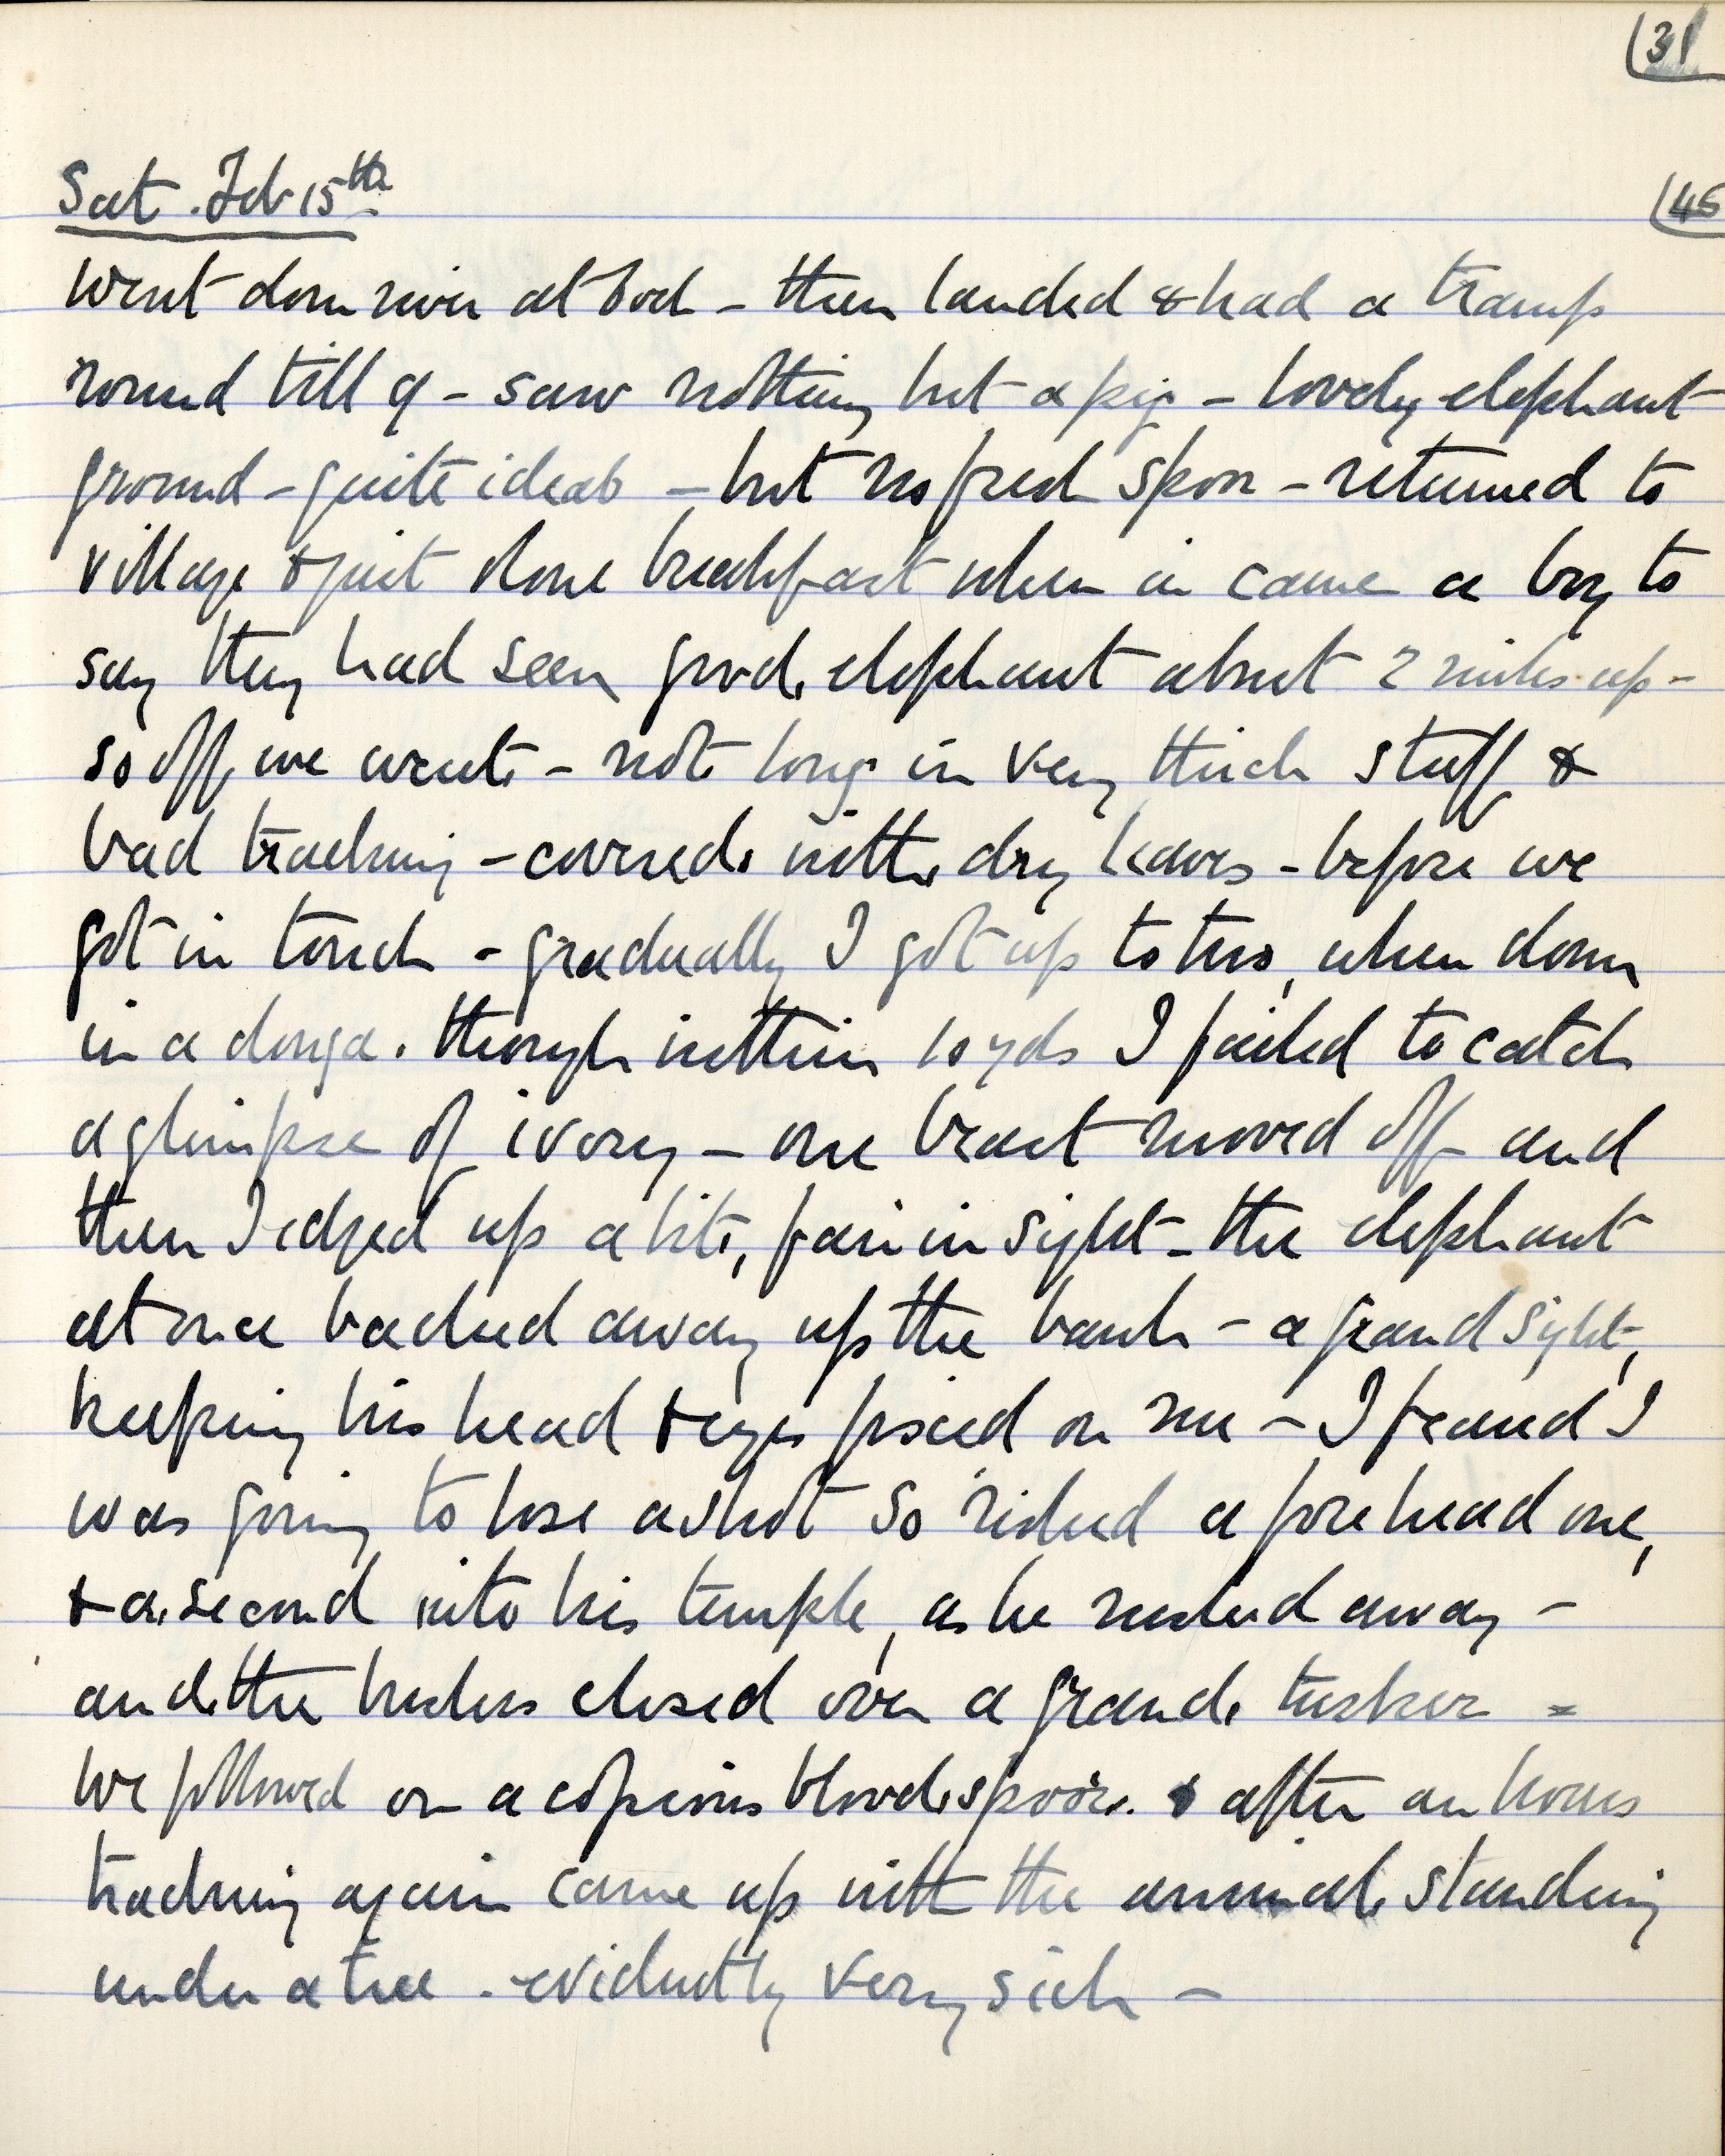 31
Sat. Feb 15th
45
Went down river at 6 oct - then landed & had a tramp
round till 9 - saw nothing but a pig - lovely elephant
ground - quite ideal - but no fresh spoor - returned to
village & just done breakfast when in came a boy to
say they had seen good elephant about 2 miles up -
so off we went - not long in very thick stuff &
bad tracking - covered with dry leaves - before we
got in touch - gradually I got up to two, when down
in a donga. though within 10 yds I failed to catch
a glimpse of ivory - one beast moved off and
then I edged up a bit, fair in sight - the elephant
at once backed away up the bank - a grand sight,
keeping his head & eyes fixed on me - I feared I
was going to lose a shot so risked a forehead one,
& a second into his temple, as he rushed away -
and the bushes closed over a grand tusker =
We followed on a copious blood spoor. & after an hours
tracking again came up with the animal standing
under a tree - evidently very sick -